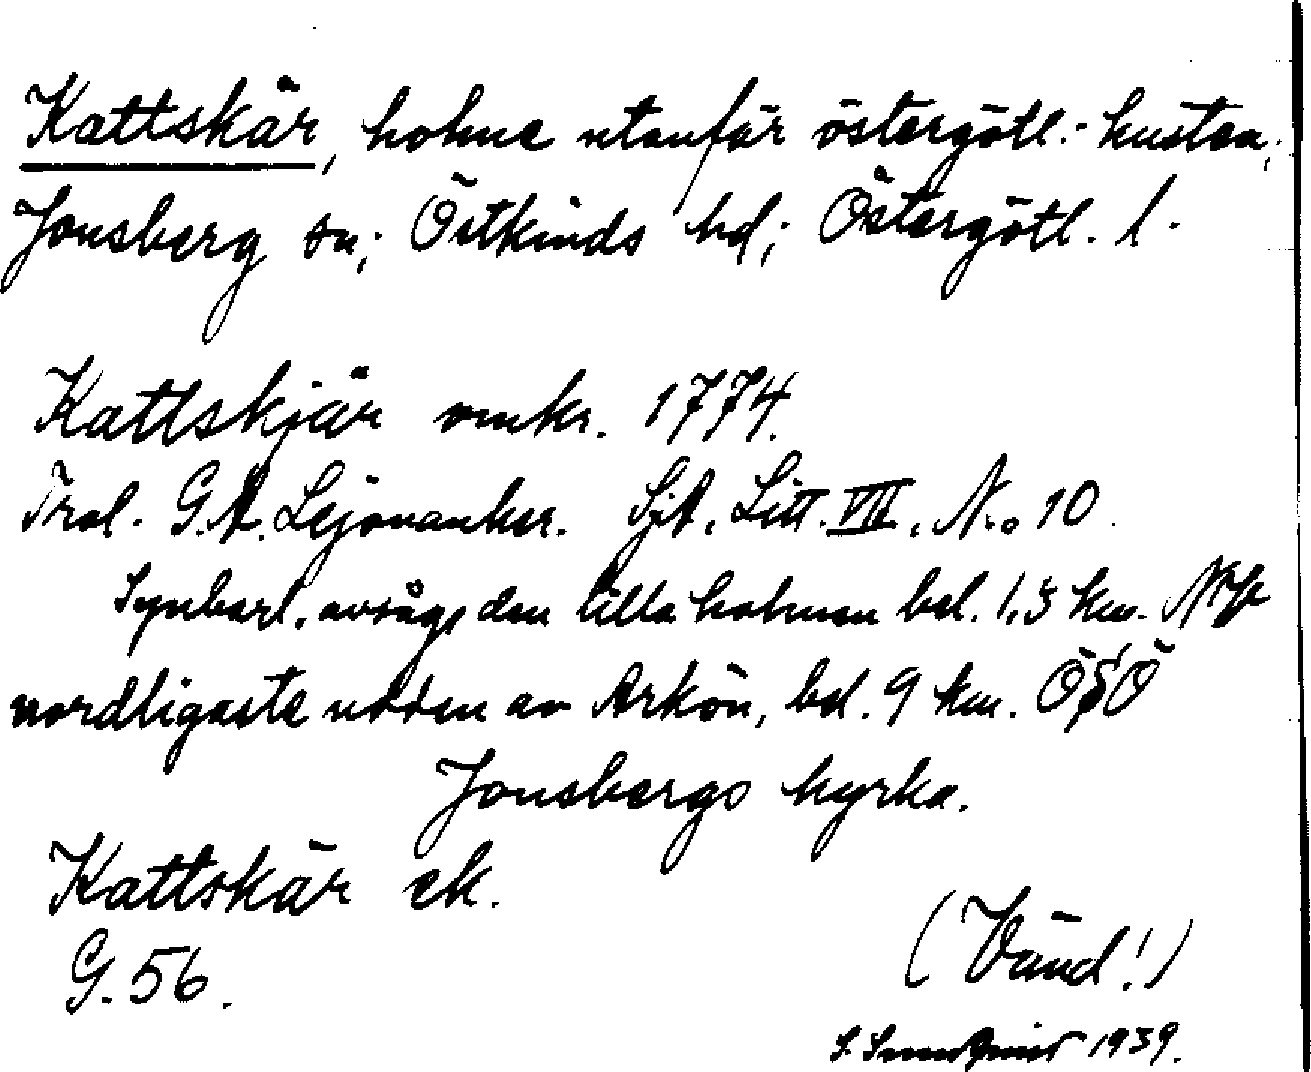 Kattskär, holme utanför östergötl.-kusten;
Jonsberg sn; Östkinds hd; Östergötl. l.
Kattskjär omkr. 1774.
Trol. G.A. Lejonanker. SjA, Litt. VIII, N:o 10.
Synbarl. avsågs den lilla holmen bel. 1,5 km.
nordligaste udden av Arkön, bel. 9 km. ÖSÖ
Jonsbergs kyrka.
Kattskär ek.
G. 56.
(Vänd!)
S. 1939.